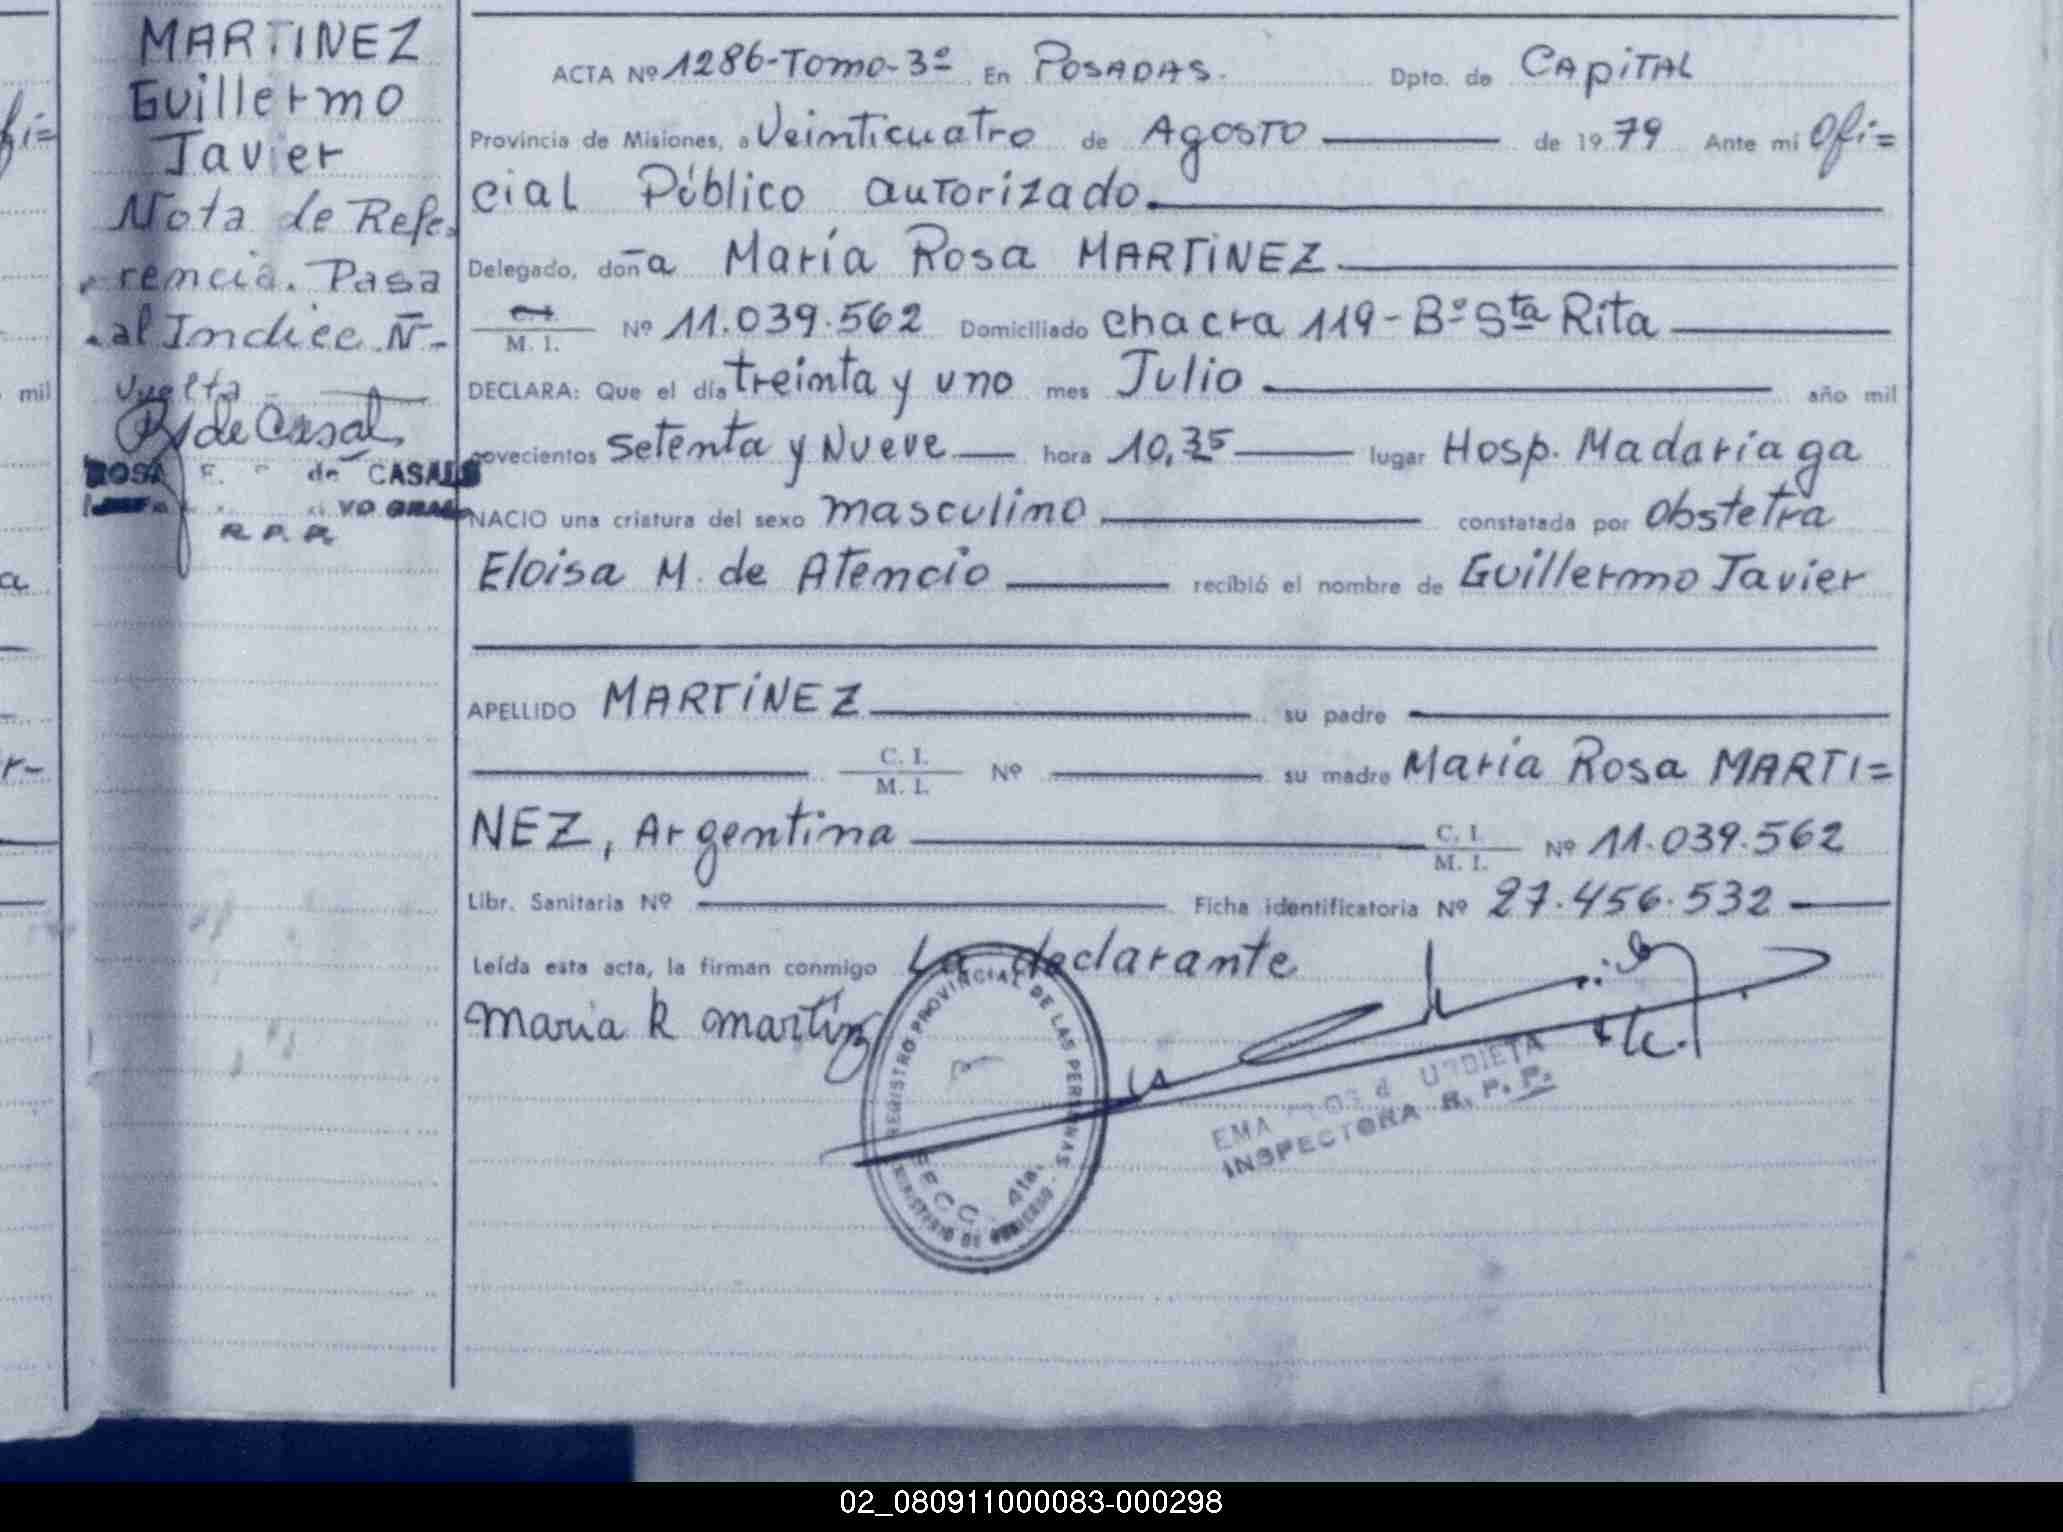 MARTINEZ
Guillermo
Javier
Nota de Refe-
rencia. Pasa
al Indice N-
vuelta
de Casal
ROSA de CASALS
R. P. P.
ACTA Nº 1286-Tomo-3º En POSADAS. Dpto. de CAPITAL
Provincia de Misiones, a Veinticuatro de AGOSTO de 19 79 Ante mi Ofi=
cial Público autorizado.
Delegado, doña María Rosa MARTINEZ
M. I. Nº 11.039.562 Domiciliado chacra 119 - Bº Sta Rita
DECLARA: Que el día treinta y uno mes Julio año mil
novecientos setenta y Nueve hora 10,35 lugar Hosp. Madariaga
NACIO una criatura del sexo masculino constatada por obstetra
Eloisa M. de Atencio recibió el nombre de Guillermo Javier
APELLIDO MARTINEZ su padre
C. I.
M. I. Nº su madre María Rosa MARTI=
NEZ, Argentina C. I.
M. I. Nº 11.039.562
Libr. Sanitaria Nº Ficha identificatoria Nº 27.456.532
Leída esta acta, la firman conmigo La declarante
maria R martinz
REGISTRO PROVINCIAL DE LAS PERSONAS
MINISTERIO DE GOBIERNO
SECC. 4ta.
EMA URDIETA
INSPECTORA R. P. P.
fi=
mil
a
r-
02_080911000083-000298